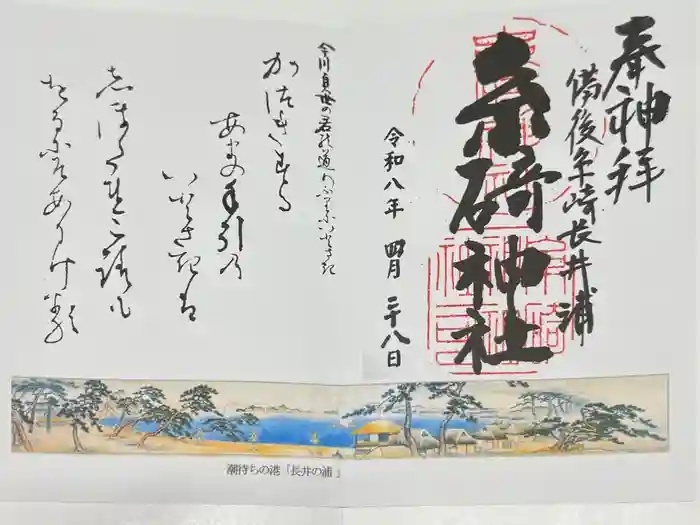 奉神拝
備後糸崎長井浦
糸碕神社
令和八年 四月 二十八日
今川貞世の君の道
かつきする
あまの手引の
いとさきは
しほたれ衣
をるにそありける
潮待ちの港「長井の浦」